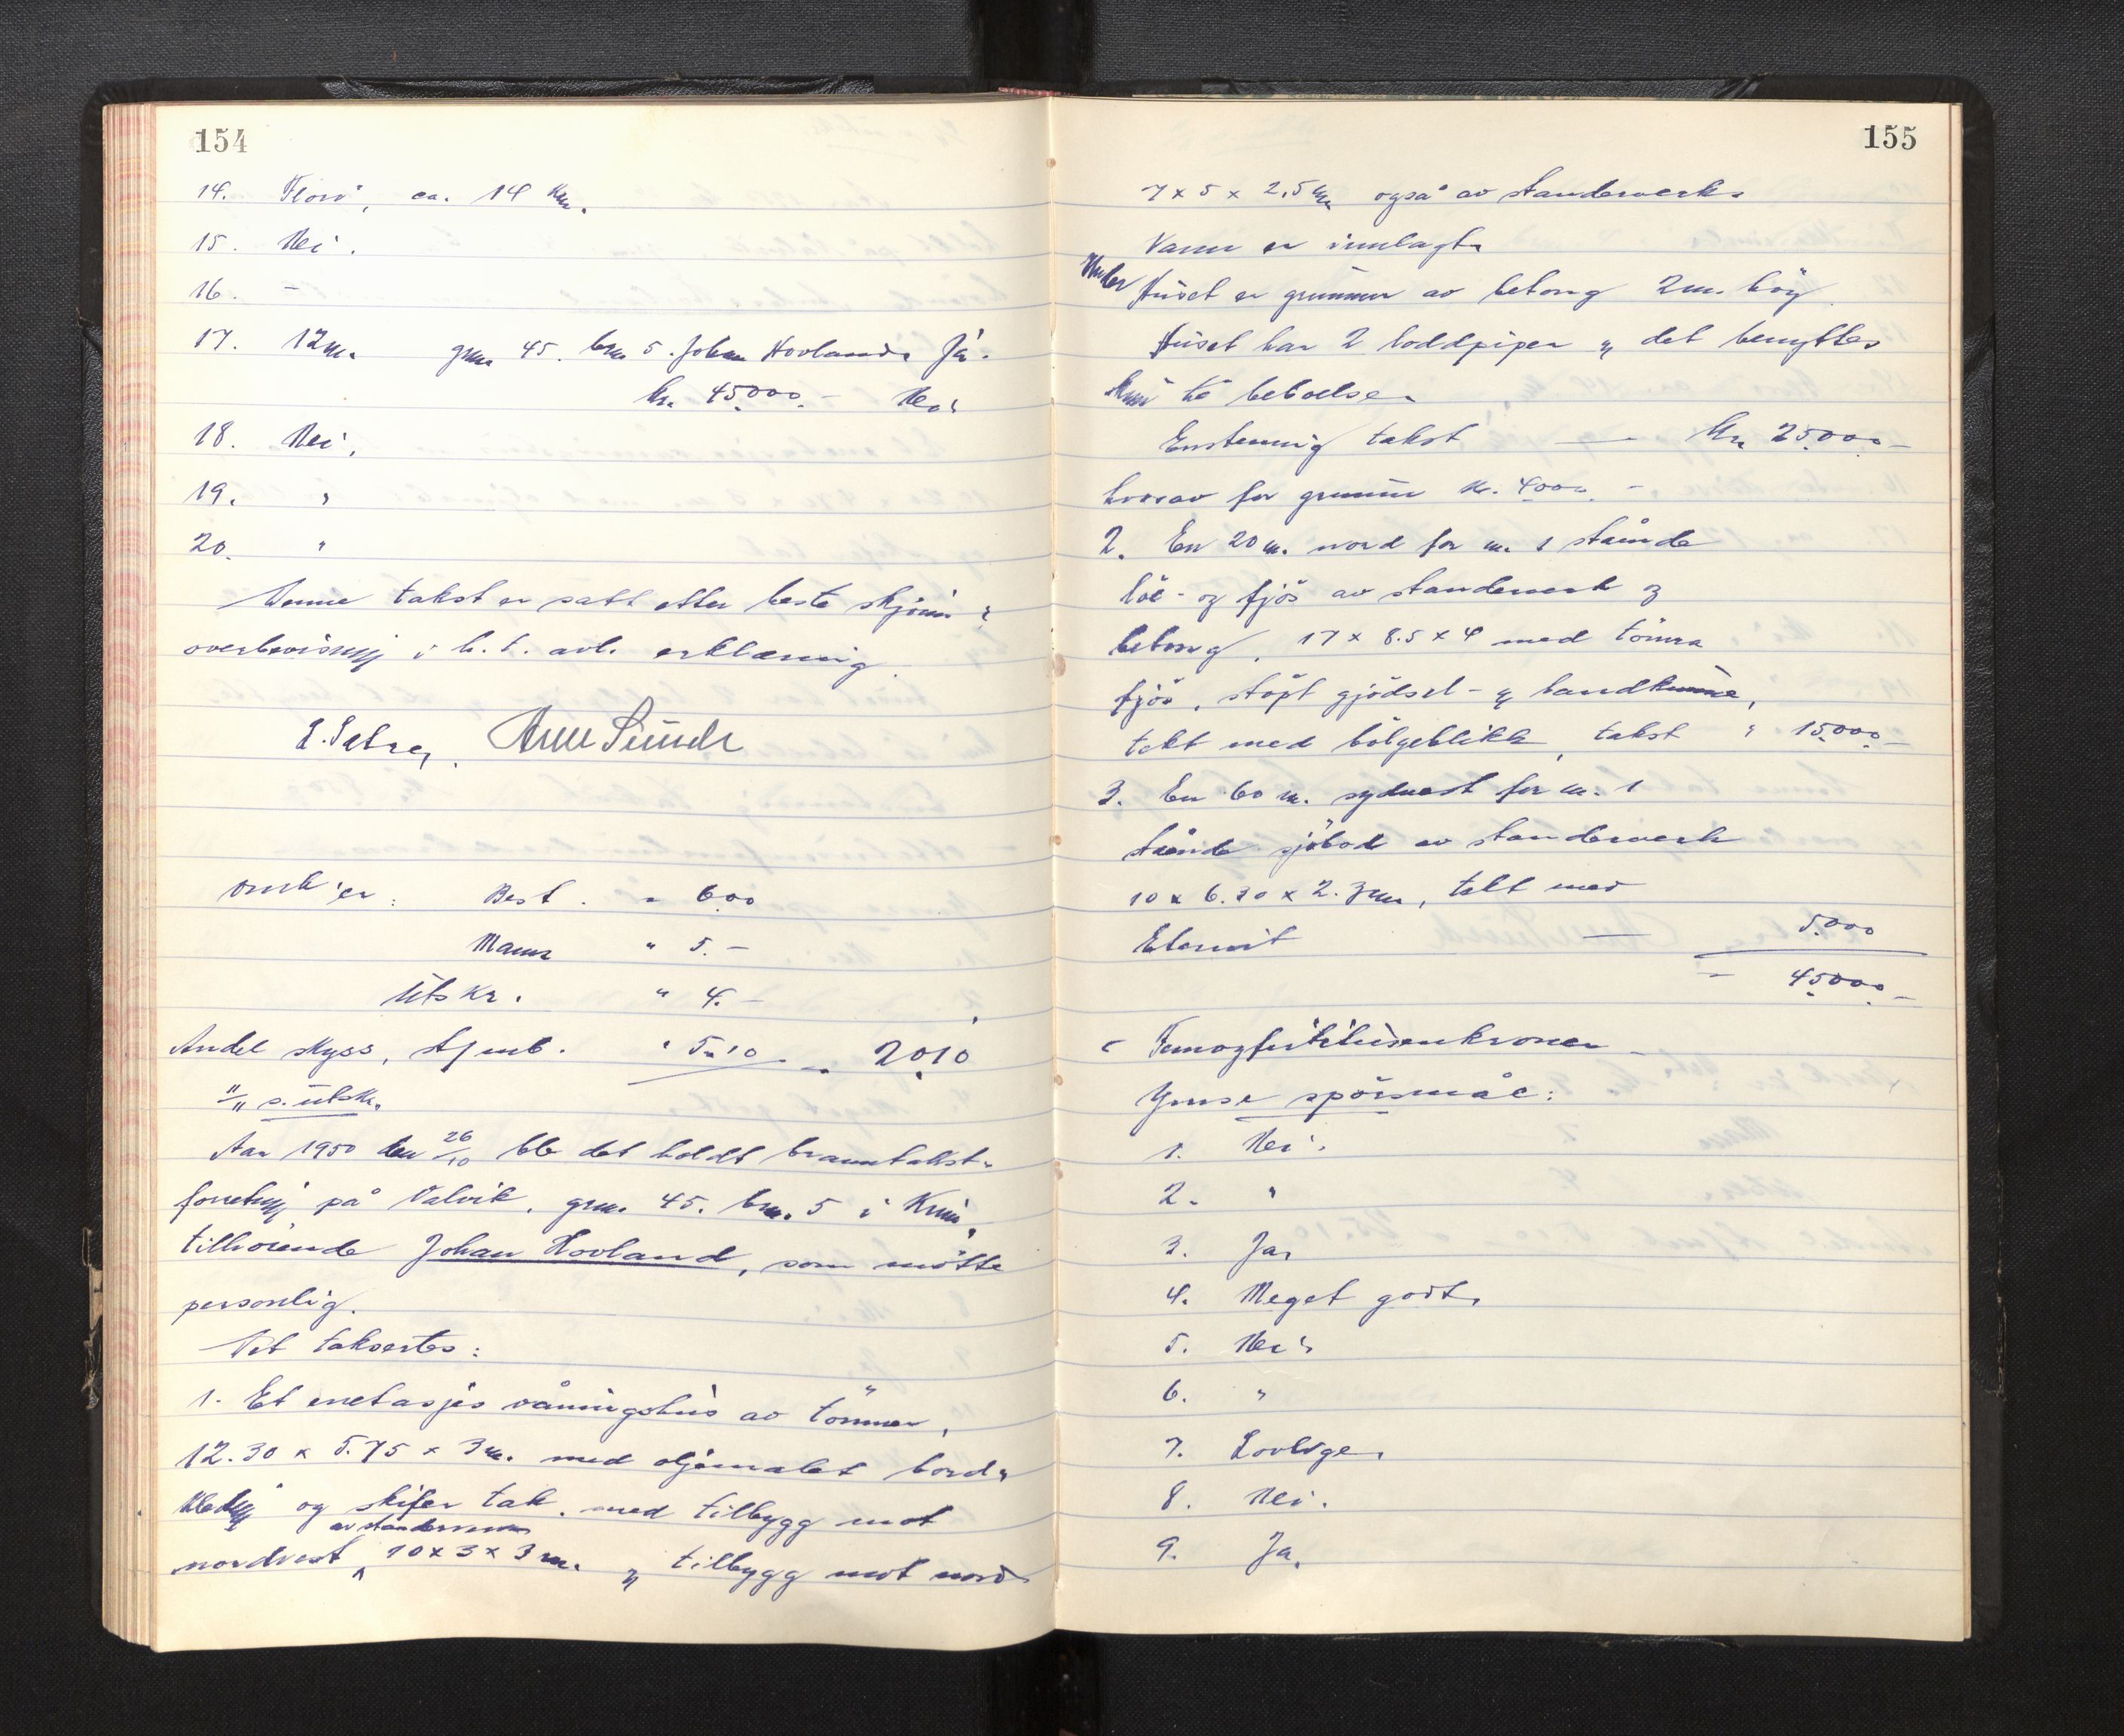 154
14. Florø, ca. 14 km.
15. Nei.
16. -
17. 12 m. gnr. 45. brn 5. Johan Hovland. Ja.
kr. 45.000.- Nei
18. Nei.
19. "
20. "
Denne takst er satt etter beste skjønn &
overbevisning i h. t. avl. erklæring
E. Sætre, Arne Sunde
Omk'er: Best. " 6.00
Mann " 5.-
Utskr. " 4.-
Andel skyss, 5.10 - 20.10
"/" s. utskr.
Aar 1950 den 26/10 ble det holdt branntakst-
forretning på Valvik, gnr. 45. brn. 5 i Kinn,
tilhörende Johan Hovland, som møtte
personlig.
Det taksertes:
1. Et enetasjes våningshus av tömmer,
12.30 x 5.75 x 3 m. med oljemalet bord-
kledning og skifer tak. med tilbygg mot
av standerverk
nordvest 10 x 3 x 3 m. og tilbygg mot nord
155
7 x 5 x 2.5 m også av standerverk.
Vann er innlagt.
Under Huset er grunnmur av betong 2 m. höy
Huset har 2 loddpiper og det benyttes
kun til beboelse.
Enstemmig takst — Kr. 25.000.-
hvorav for grunnmur kr. 4.000.-
2. En 20 m. nord for nr. 1 stående
löe- og fjös av standerverk og
betong, 17 x 8.5 x 4 med tömra
fjös, stöpt gjödsel- og landkumme,
tekt med bölgeblikk, takst " 15.000.-
3. En 60 m. sydvest for nr. 1
stående sjöbod av standerverk
10 x 6.30 x 2.3 m, tekt med
Eternit — 5.000
= 45.000.-
Femogförtitusenkroner -
Ymse spörsmål:
1. Nei.
2. "
3. Ja.
4. Meget godt.
5. Nei.
6. "
7. Lovlige.
8. Nei.
9. Ja.